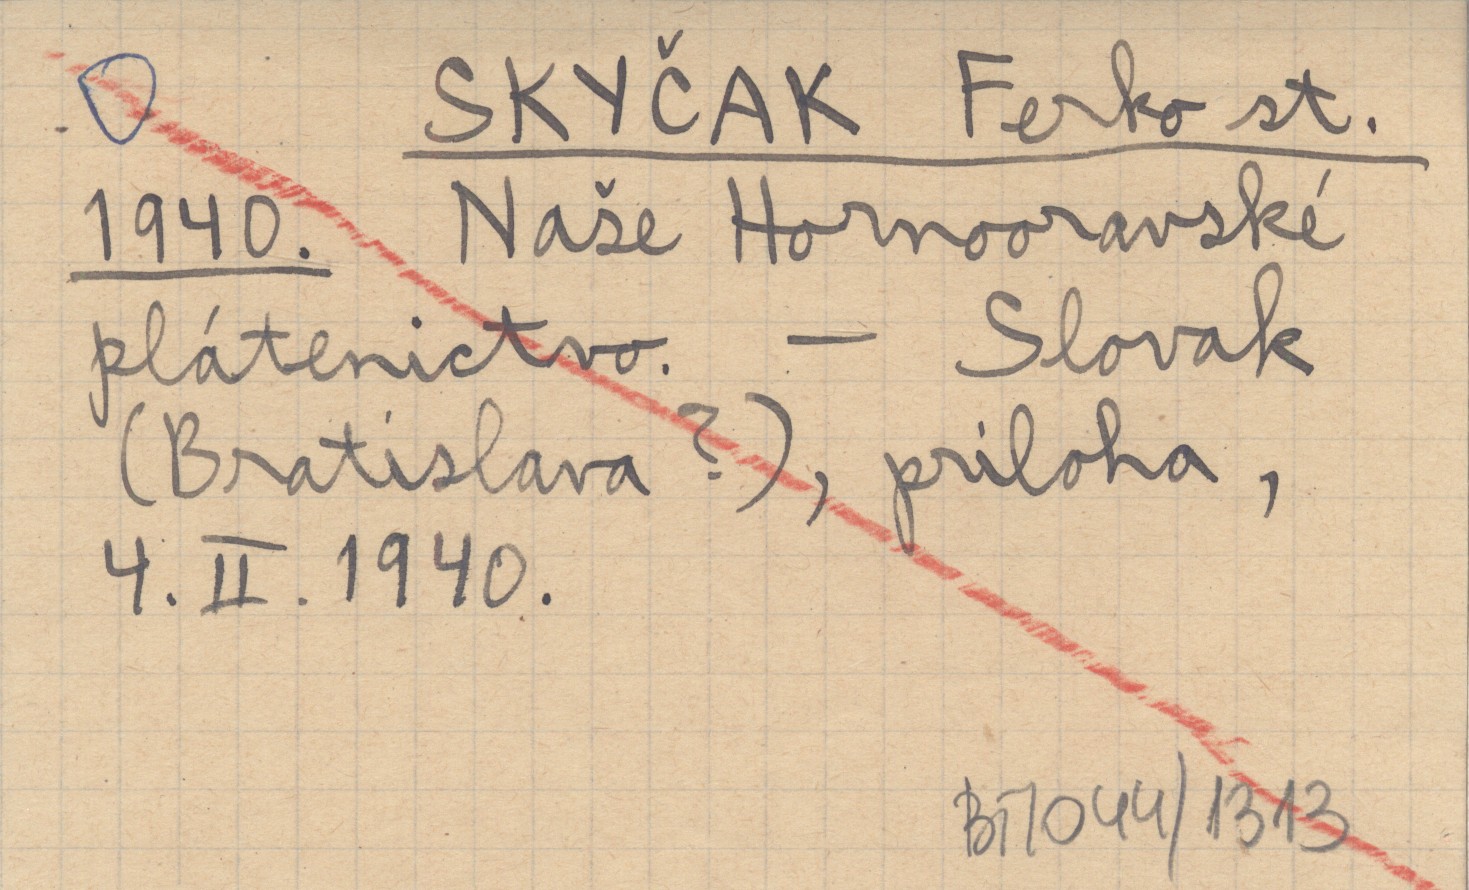 SKYČAK Ferko st.
1940. Naše Hornooravské
plátenictvo. — Slovak
(Bratislava ?), priloha,
4. II. 1940.
BI7044/1313